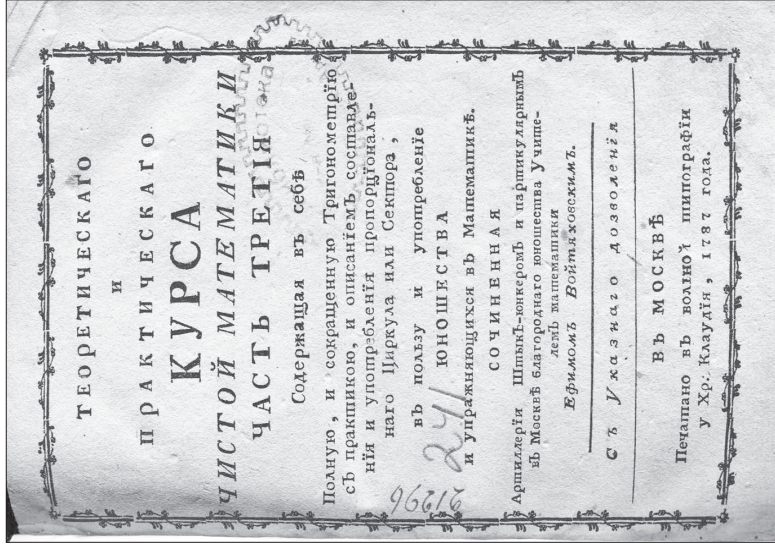 ТЕОРЕТИЧЕСКАГО
и
ПРАКТИЧЕСКАГО
КУРСА
ЧИСТОЙ МАТЕМАТИКИ
ЧАСТЬ ТРЕТІЯ
Содержащая въ себѣ
Полную, и сокращенную Тригонометрїю
съ практикою, и описанїемъ составле-
нїя и употребленїя пропорцїональ-
наго Циркула или Сектора,
въ пользу и употребленїе
ЮНОШЕСТВА
и упражняющихся въ Математикѣ.
СОЧИНЕННАЯ
Артиллерїи Штыкъ-юнкеромъ и партикулярнымъ
въ Москвѣ благороднаго юношества Учите-
лемъ математики
Ефимомъ Войтяховскимъ.
Съ Указнаго дозволенїя
ВЪ МОСКВѢ
Печатано въ волной типографїи
у Хр: Клаудїя, 1787 года.
241
21296